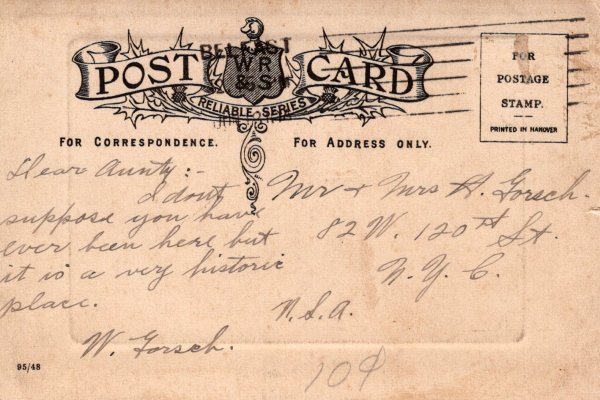 BELFAST
POST CARD
W R
& S Ltd
RELIABLE SERIES
FOR CORRESPONDENCE.
FOR ADDRESS ONLY.
FOR
POSTAGE
STAMP.
PRINTED IN HANOVER
Dear Aunty :-
I dont
suppose you have
ever been here but
it is a very historic
place.
W. Gorsch.
Mr + Mrs H. Gorsch.
82 W. 120th St.
N.Y.C.
U.S.A.
10¢
95/48